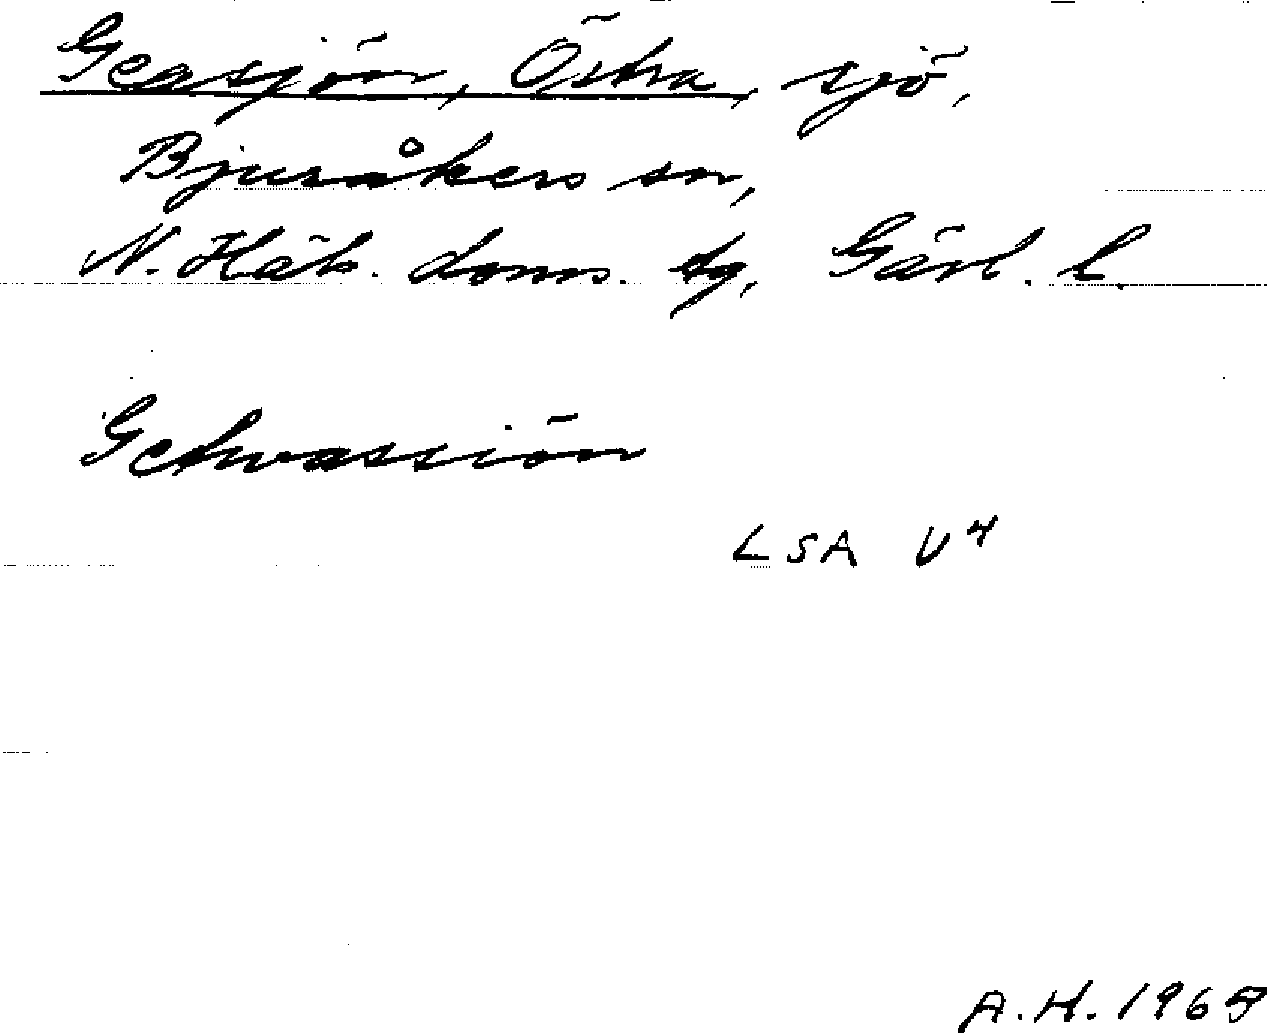 Geasjön, Östra, sjö,
Bjuråkers sn,
N. Häls. doms. tg, Gävl. l.
Getwassiön
LSA U4
A.H. 1965